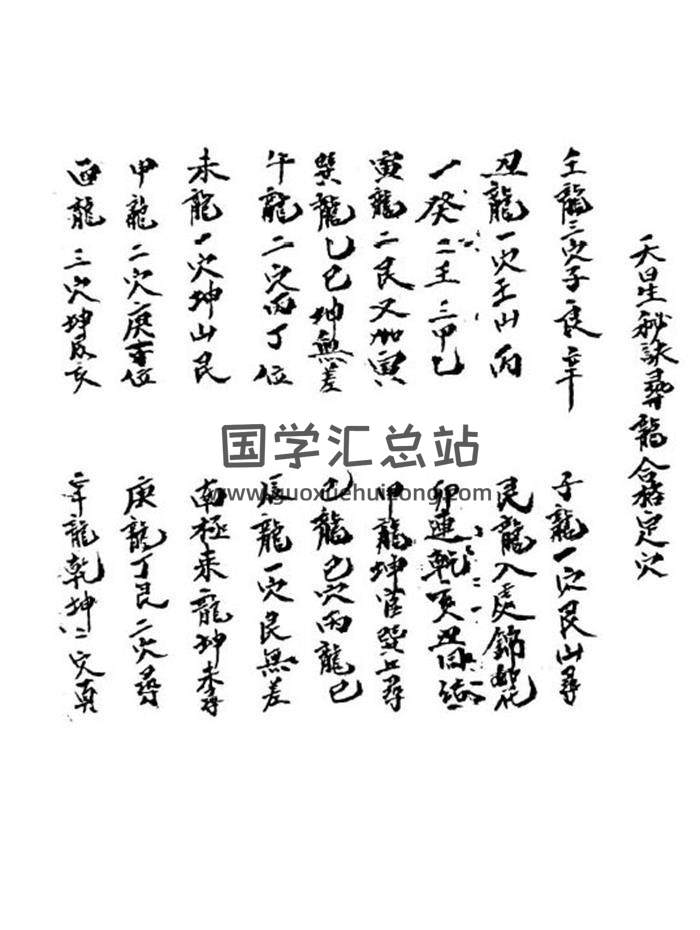 天星秘訣尋龍合格定穴
壬龍三穴子艮辛
子龍一穴艮山尋
丑龍一穴壬山丙
艮龍入處錦如花
一癸二壬三甲乙
卯連乾亥丑同
寅龍二艮又加寅
甲龍坤宮巽上尋
巽龍乙巳坤無差
巳龍巳穴丙龍巳
午龍二穴丙丁位
辰龍一穴艮無差
未龍一穴坤山艮
南極来龍坤未尋
申龍二穴庚位
庚龍丁艮二穴尋
酉龍三穴坤艮亥
辛龍乾坤二穴真
国学汇总站
www.guoxuehuizong.com